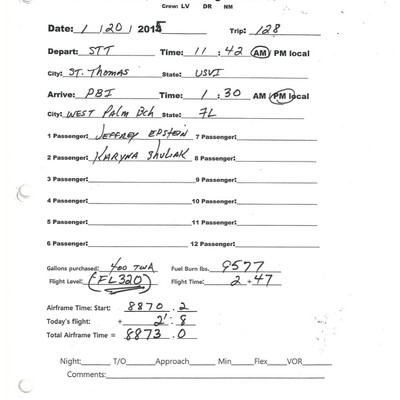 Crew: LV DR NM
Date: 1 / 20 / 2015 Trip: 128
Depart: STT Time: 11 : 42 AM / PM local
City: ST. Thomas State: USVI
Arrive: PBI Time: 1 : 30 AM / PM local
City: WEST PALM Bch State: FL
1 Passenger: JEFFREY EPSTEIN 7 Passenger:
2 Passenger: KARYNA SHULIAK 8 Passenger:
3 Passenger: 9 Passenger:
4 Passenger: 10 Passenger:
5 Passenger: 11 Passenger:
6 Passenger: 12 Passenger:
Gallons purchased: 400 TWA Fuel Burn lbs. 9577
Flight Level: (FL320) Flight Time: 2 + 47
Airframe Time: Start: 8870 . 2
Today's flight: + 2 . 8
Total Airframe Time = 8873 . 0
Night: T/O Approach Min Flex VOR
Comments: